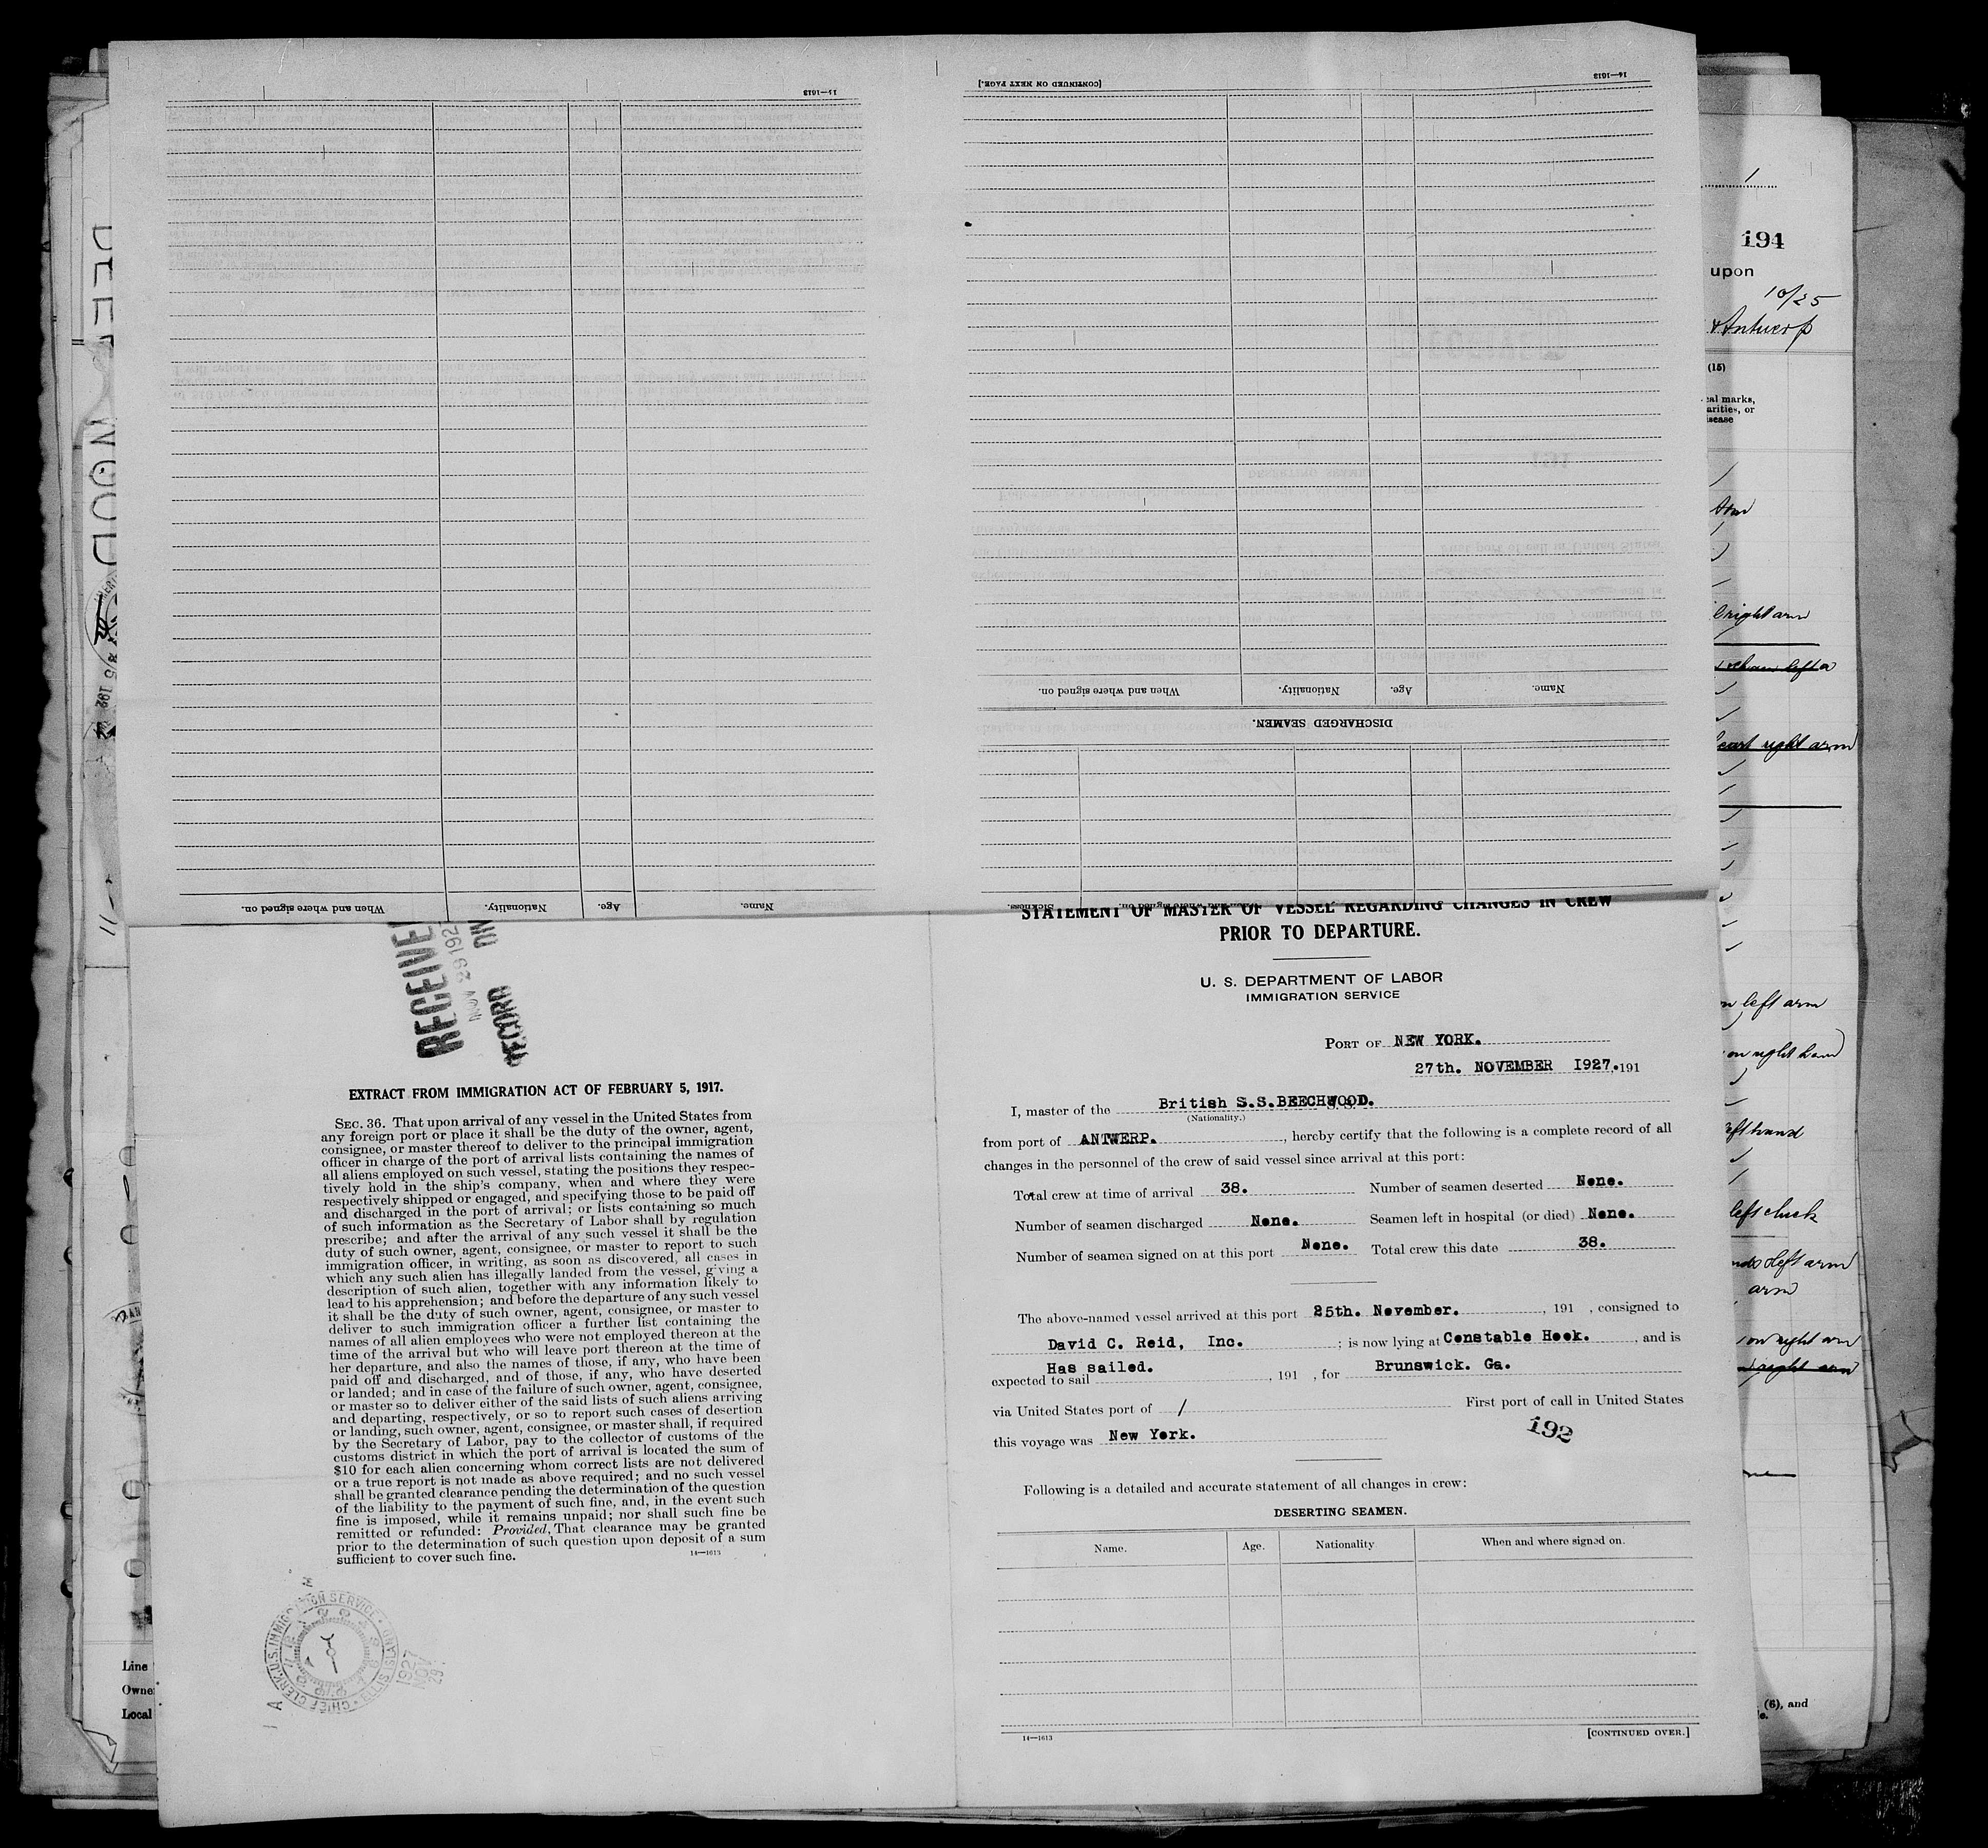 [CONTINUED ON NEXT PAGE.]
14—1613
15—1613
When and where signed on.
Nationality.
Age.
Name.
DISCHARGED SEAMEN.
When and where signed on.
Nationality.
Age.
Name.
Sickness.
RECEIVED
NOV 29 192
RECORD DIV
EXTRACT FROM IMMIGRATION ACT OF FEBRUARY 5, 1917.
SEC. 36. That upon arrival of any vessel in the United States from
any foreign port or place it shall be the duty of the owner, agent,
consignee, or master thereof to deliver to the principal immigration
officer in charge of the port of arrival lists containing the names of
all aliens employed on such vessel, stating the positions they respec-
tively hold in the ship's company, when and where they were
respectively shipped or engaged, and specifying those to be paid off
and discharged in the port of arrival; or lists containing so much
of such information as the Secretary of Labor shall by regulation
prescribe; and after the arrival of any such vessel it shall be the
duty of such owner, agent, consignee, or master to report to such
immigration officer, in writing, as soon as discovered, all cases in
which any such alien has illegally landed from the vessel, giving a
description of such alien, together with any information likely to
lead to his apprehension; and before the departure of any such vessel
it shall be the duty of such owner, agent, consignee, or master to
deliver to such immigration officer a further list containing the
names of all alien employees who were not employed thereon at the
time of the arrival but who will leave port thereon at the time of
her departure, and also the names of those, if any, who have been
paid off and discharged, and of those, if any, who have deserted
or landed; and in case of the failure of such owner, agent, consignee,
or master so to deliver either of the said lists of such aliens arriving
and departing, respectively, or so to report such cases of desertion
or landing, such owner, agent, consignee, or master shall, if required
by the Secretary of Labor, pay to the collector of customs of the
customs district in which the port of arrival is located the sum of
$10 for each alien concerning whom correct lists are not delivered
or a true report is not made as above required; and no such vessel
shall be granted clearance pending the determination of the question
of the liability to the payment of such fine, and, in the event such
fine is imposed, while it remains unpaid; nor shall such fine be
remitted or refunded: Provided, That clearance may be granted
prior to the determination of such question upon deposit of a sum
sufficient to cover such fine.
14—1613
CHIEF CLERK, U.S. IMMIGRATION SERVICE · ELLIS ISLAND
1927
NOV
29
STATEMENT OF MASTER OF VESSEL REGARDING CHANGES IN CREW
PRIOR TO DEPARTURE.
U. S. DEPARTMENT OF LABOR
IMMIGRATION SERVICE
PORT OF NEW YORK.
27th. NOVEMBER 1927. 191
I, master of the British S.S.BEECHWOOD.
(Nationality.)
from port of ANTWERP. , hereby certify that the following is a complete record of all
changes in the personnel of the crew of said vessel since arrival at this port:
Total crew at time of arrival 38. Number of seamen deserted None.
Number of seamen discharged None. Seamen left in hospital (or died) None.
Number of seamen signed on at this port None. Total crew this date 38.
The above-named vessel arrived at this port 25th. November. , 191 , consigned to
David C. Reid, Inc. ; is now lying at Constable Hook. , and is
expected to sail Has sailed. , 191 , for Brunswick. Ga.
via United States port of / First port of call in United States
this voyage was New York.
192
Following is a detailed and accurate statement of all changes in crew:
DESERTING SEAMEN.
Name. Age. Nationality When and where signed on.
14—1613
[CONTINUED OVER.]
WOOD
Line
Owne
Local
194
upon
10/25
Antwerp
(15)
cal marks,
arities, or
isease
right arm
right arm
left arm
on right hand
left cheek
left arm
arm
on right arm
right arm
(6), and